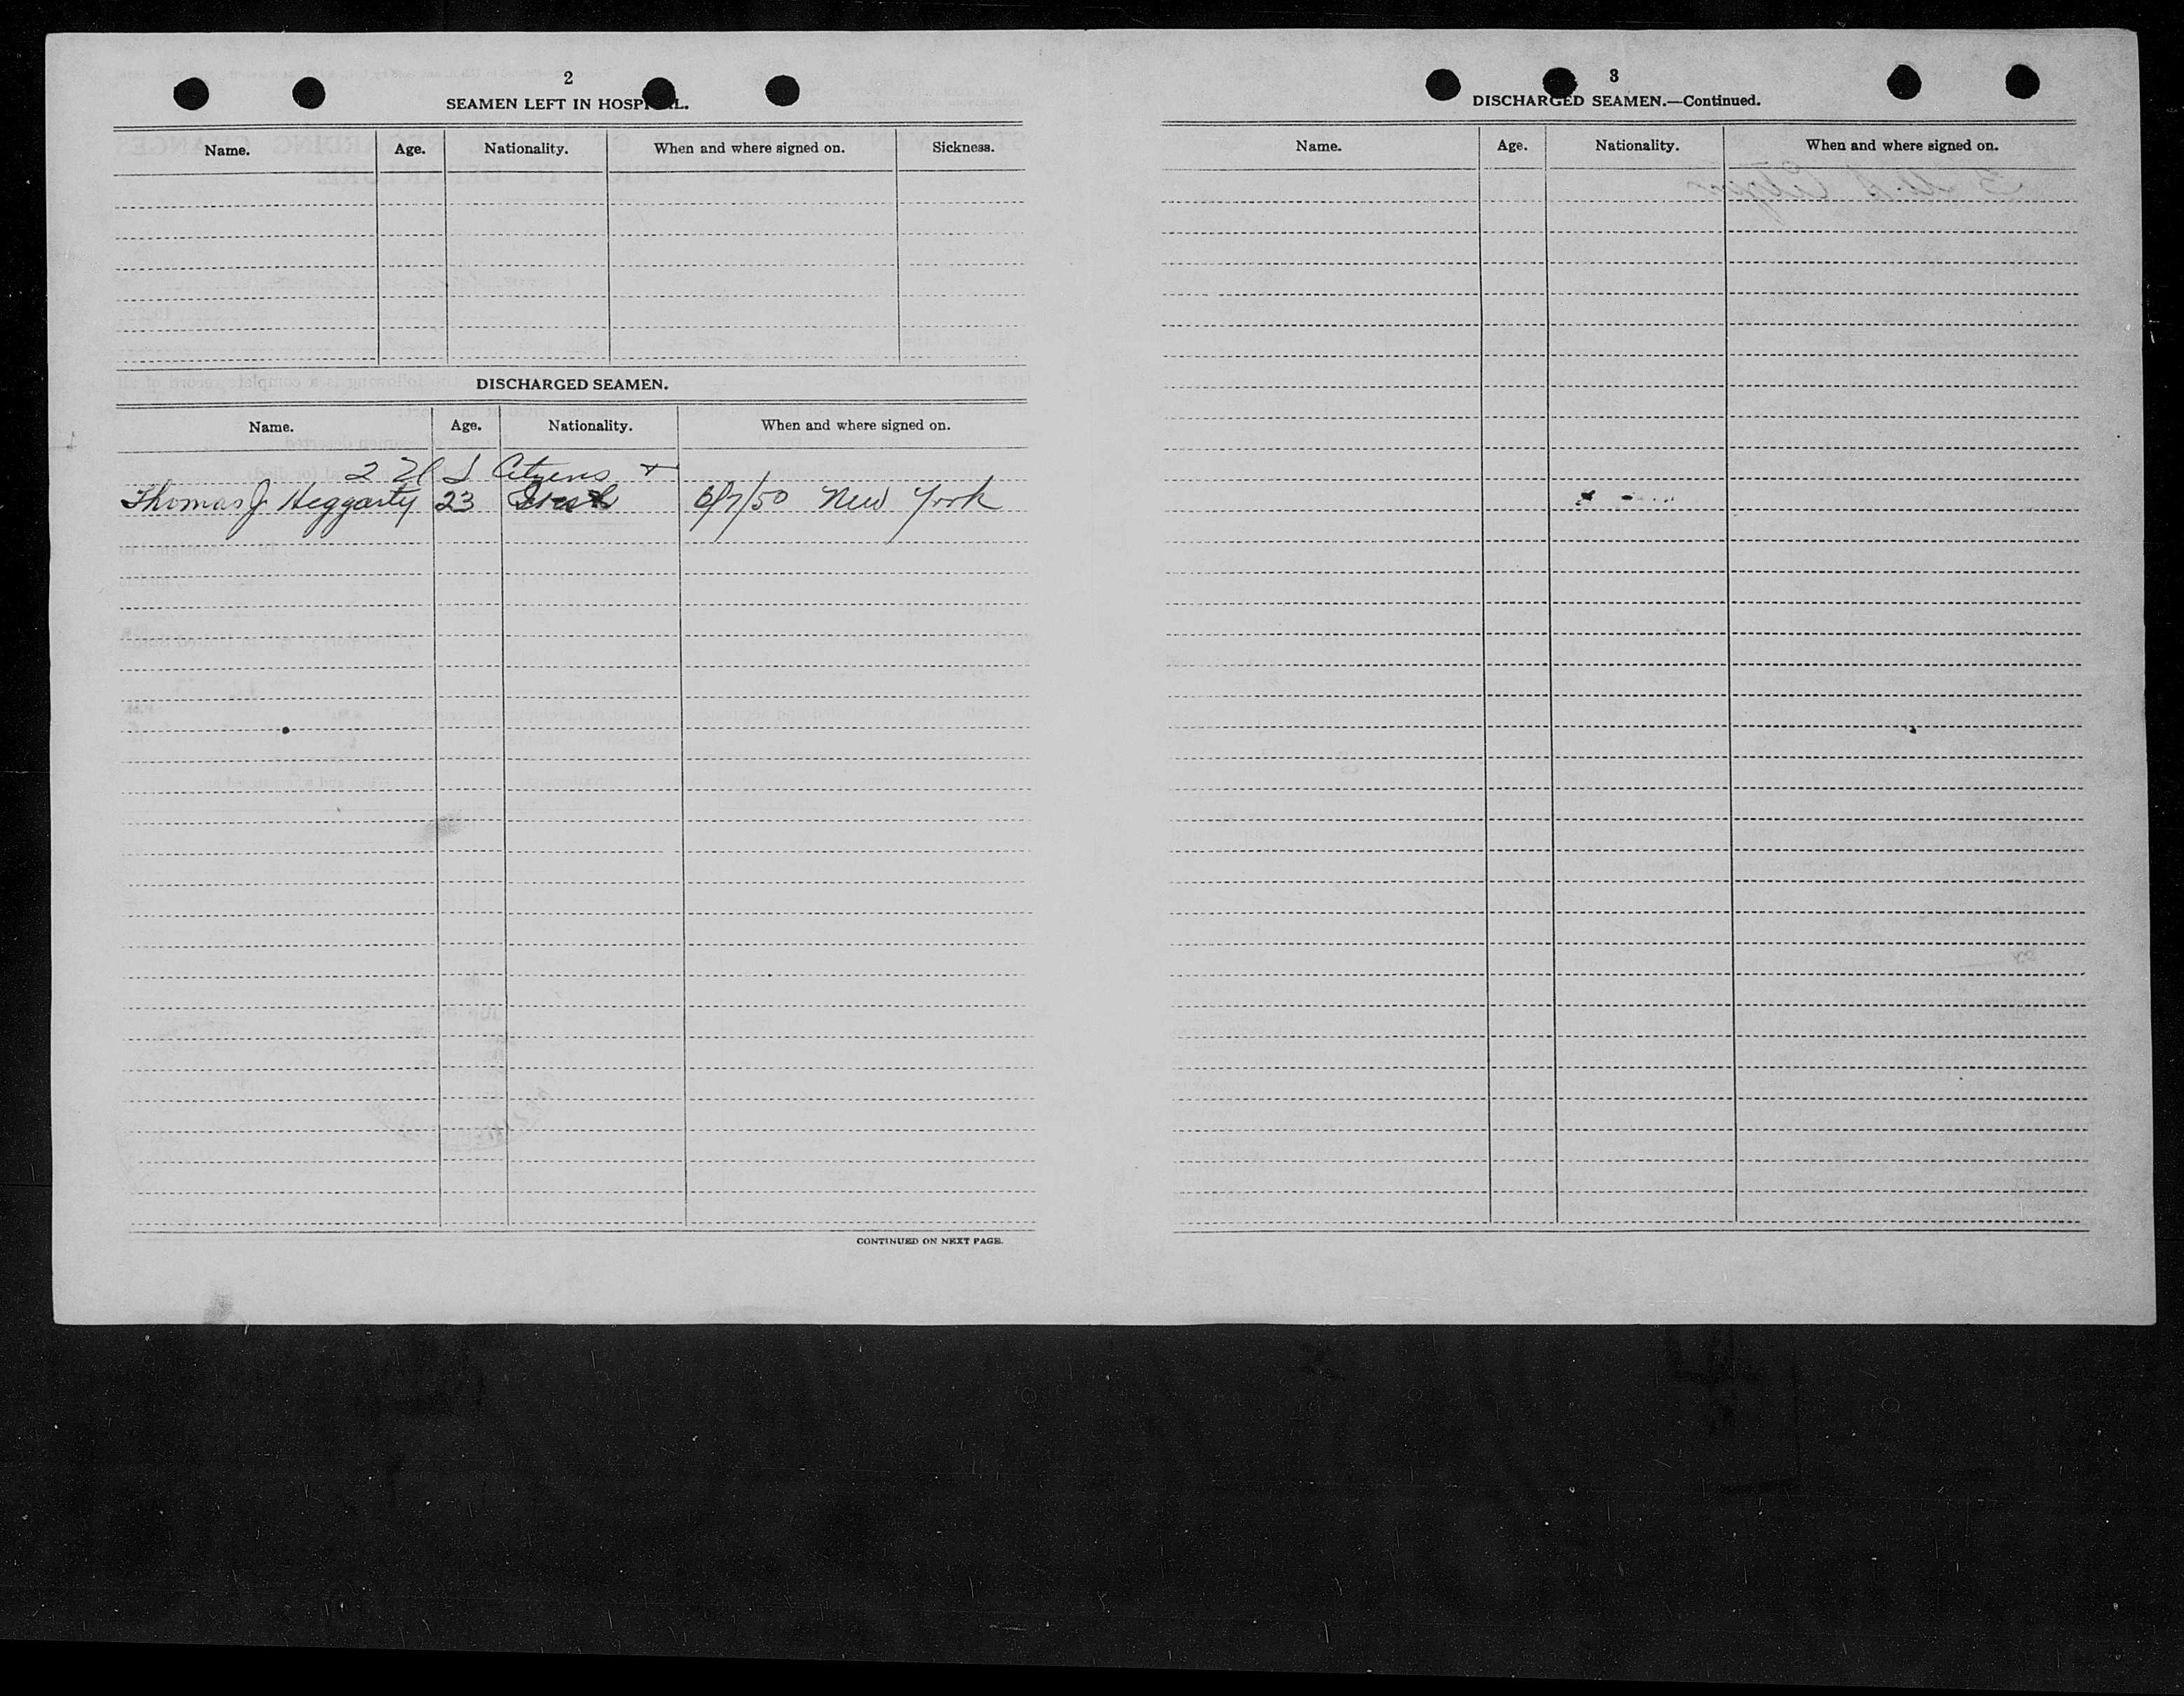 2
SEAMEN LEFT IN HOSPITAL.
Name. Age. Nationality. When and where signed on. Sickness.
DISCHARGED SEAMEN.
Name. Age. Nationality. When and where signed on.
2 U S Citizens +
Thomas J Heggarty 23 Irish 6/7/50 New York
CONTINUED ON NEXT PAGE.
3
DISCHARGED SEAMEN.—Continued.
Name. Age. Nationality. When and where signed on.